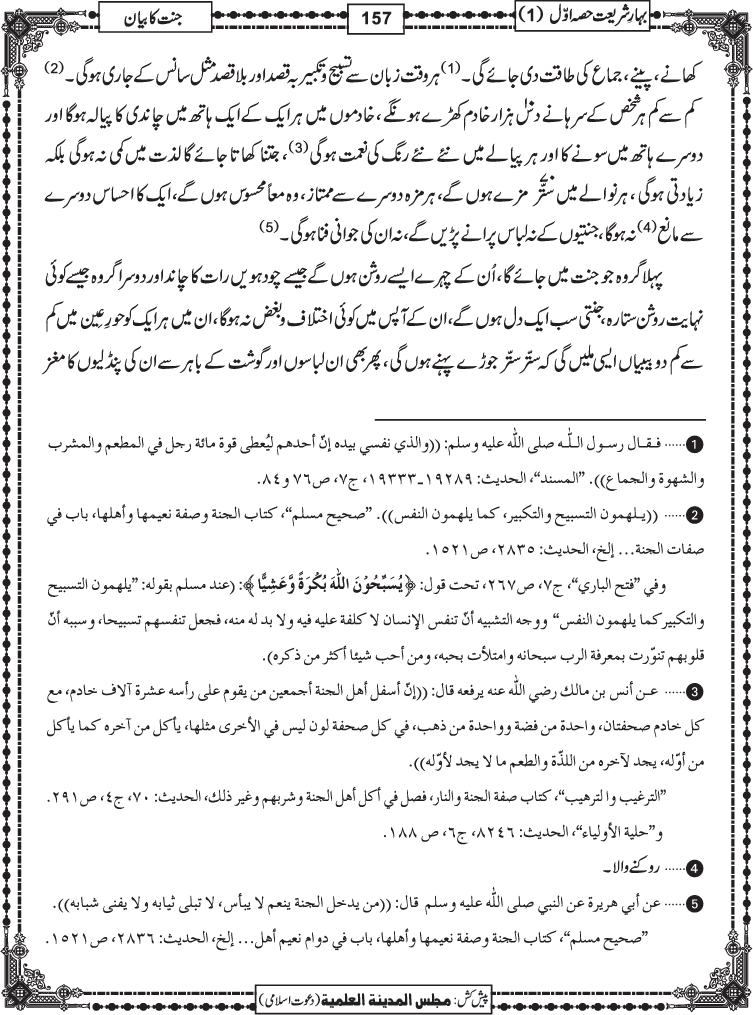 بہارِ شریعت حصہ اوّل (1)
157
جنت کا بیان
کھانے، پینے، جماع کی طاقت دی جائے گی۔(1) ہر وقت زبان سے تسبیح و تکبیر بہ قصد اور بلا قصد مثل سانس کے جاری ہوگی۔ (2)
کم سے کم ہر شخص کے سرہانے دس ہزار خادم کھڑے ہونگے، خادموں میں ہر ایک کے ایک ہاتھ میں چاندی کا پیالہ ہوگا اور
دوسرے ہاتھ میں سونے کا اور ہر پیالے میں نئے نئے رنگ کی نعمت ہوگی (3)، جتنا کھاتا جائے گا لذت میں کمی نہ ہوگی بلکہ
زیادتی ہوگی، ہر نوالے میں ستّر مزے ہوں گے، ہر مزہ دوسرے سے ممتاز، وہ معاً محسوس ہوں گے، ایک کا احساس دوسرے
سے مانع (4) نہ ہوگا، جنتیوں کے نہ لباس پرانے پڑیں گے، نہ ان کی جوانی فنا ہوگی۔ (5)
پہلا گروہ جو جنت میں جائے گا، اُن کے چہرے ایسے روشن ہوں گے جیسے چودہویں رات کا چاند اور دوسرا گروہ جیسے کوئی
نہایت روشن ستارہ، جنتی سب ایک دل ہوں گے، ان کے آپس میں کوئی اختلاف و بغض نہ ہوگا، ان میں ہر ایک کو حورِ عین میں کم
سے کم دو بیبیاں ایسی ملیں گی کہ ستّر ستّر جوڑے پہنے ہوں گی، پھر بھی ان لباسوں اور گوشت کے باہر سے ان کی پنڈلیوں کا مغز
1 ...... فقال رسول اللّٰه صلى اللّٰه عليه وسلم: ((والذي نفسي بيده إنّ أحدهم ليُعطى قوة مائة رجل في المطعم والمشرب
والشهوة والجماع)). ”المسند“، الحديث: ١٩٢٨٩ـ١٩٣٣٣، ج٧، ص٧٦ و٨٤.
2 ...... ((يلهمون التسبيح والتكبير، كما يلهمون النفس)). ”صحيح مسلم“، كتاب الجنة وصفة نعيمها وأهلها، باب في
صفات الجنة... إلخ، الحديث: ٢٨٣٥، ص١٥٢١.
وفي ”فتح الباري“، ج٧، ص٢٦٧، تحت قول: ﴿يُسَبِّحُوْنَ اللّٰهَ بُكْرَةً وَّعَشِيًّا﴾: (عند مسلم بقوله: ”يلهمون التسبيح
والتكبير كما يلهمون النفس“ ووجه التشبيه أنّ تنفس الإنسان لا كلفة عليه فيه ولا بد له منه، فجعل تنفسهم تسبيحا، وسببه أنّ
قلوبهم تنوّرت بمعرفة الرب سبحانه وامتلأت بحبه، ومن أحب شيئا أكثر من ذكره).
3 ...... عن أنس بن مالك رضي اللّٰه عنه يرفعه قال: ((إنّ أسفل أهل الجنة أجمعين من يقوم على رأسه عشرة آلاف خادم، مع
كل خادم صحفتان، واحدة من فضة وواحدة من ذهب، في كل صحفة لون ليس في الأخرى مثلها، يأكل من آخره كما يأكل
من أوّله، يجد لآخره من اللذّة والطعم ما لا يجد لأوّله)).
”الترغيب والترهيب“، كتاب صفة الجنة والنار، فصل في أكل أهل الجنة وشربهم وغير ذلك، الحديث: ٧٠، ج٤، ص٢٩١.
و”حلية الأولياء“، الحديث: ٨٢٤٦، ج٦، ص ١٨٨.
4 ...... روکنے والا۔
5 ...... عن أبي هريرة عن النبي صلى اللّٰه عليه وسلم قال: ((من يدخل الجنة ينعم لا يبأس، لا تبلى ثيابه ولا يفنى شبابه)).
”صحيح مسلم“، كتاب الجنة وصفة نعيمها وأهلها، باب في دوام نعيم أهل... إلخ، الحديث: ٢٨٣٦، ص١٥٢١.
پیش کش: مجلس المدینۃ العلمیۃ (دعوت اسلامی)